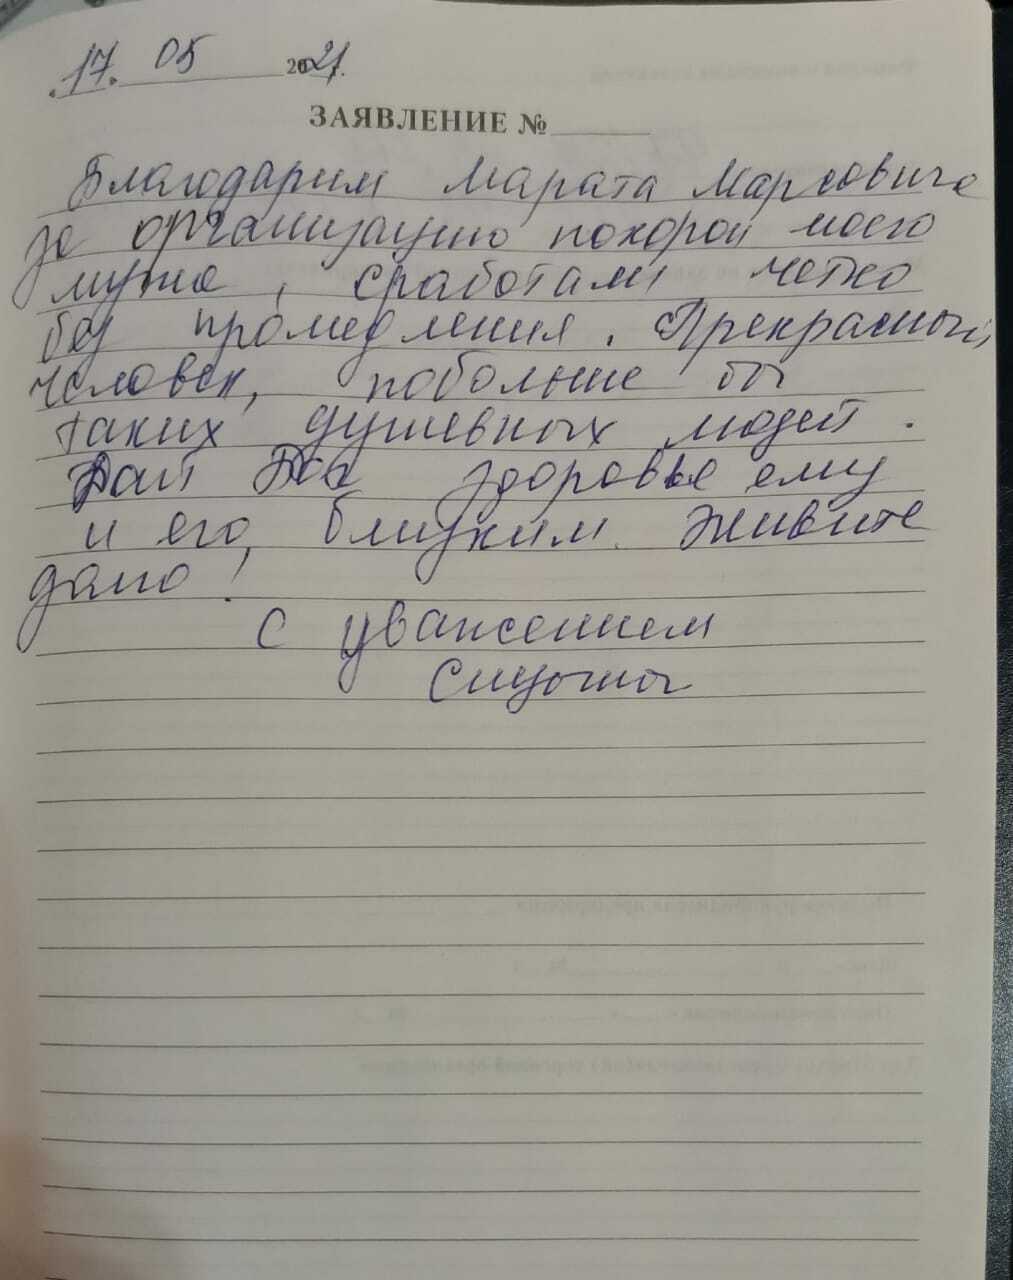 17. 05 2021.
ЗАЯВЛЕНИЕ №
Благодарим Марата Марсовича
за организацию похорон моего
мужа, сработали четко
без промедления. Прекрасный
человек, побольше бы
таких душевных людей.
Дай Бог здоровья ему
и его близким. Живите
долго!
С уважением